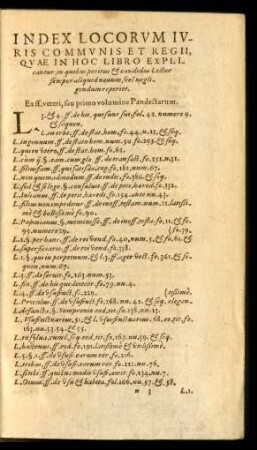 INDEX LOCORVM IV-
RIS COMMVNIS ET REGII,
QVAE IN HOC LIBRO EXPLI-
cantur, in quibus peritus & candidus Lector
semper aliquid nouum, vel negli-
gendum reperiet.
Ex ff. veteri, seu primo volumine Pandectarum.
L. 3. & 4. ff. de his, qui sunt sui, fol. 42. numero 9.
& sequen.
L. in orbe, ff. de stat. hom. fo. 44. nu. 12. & seq.
L. ingenuum, ff. de statu hom. num. 50. fo. 293. & seq.
L. qui in vtero, ff. de stat. hom. fo. 62.
L. cum ij. §. eam, cum glo. ff. de transact. fo. 251. nu. 31.
L. si liusfam. ff. qui satisda. cog. fo. 182. num. 67.
L. non quemadmodum, ff. de iudic. fo. 286. & seq.
L. sed & si lege. §. consuluit, ff. de peti. hæred. fo. 132.
L. Iulianus, ff. de peti. hæred. fo. 134. ante nu. 43.
L. si liu non impeditur, ff. de inoff. testam. nu. 21. latissi-
mè & bellissimè fo. 90.
L. Papinianus, §. meminisse, ff. de inoff. testa. fo. 11. & fo.
99. numero 29. (fo. 39.
L. 1. §. per hanc, ff. de rei vend. fo. 40. num. 5. fo. 61. &
L. superficiario, ff. de rei vend. fo. 258.
L. 1. §. qui in perpetuum, & l. 3. ff. ager vect. fo. 361. & se-
quen. num. 67.
L. 4. ff. de seruit. fo. 163. num. 53.
L. fin. ff. de his qui deiecer. fo. 79. nu. 4.
L. 1. ff. de vsufruct. fo. 120. (tissimè.
L. Proculus, ff. de vsufruct. fo. 168. nu. 42. & seq. elegan-
L. defuncta, §. Sempronio eod. tit. fo. 138. nu. 13.
L. vsufructuarius, 51. & l. vsusfructuarius, 68. eo. tit. fo.
163. nu. 53. 54. & 55.
L. ex filius, cum l. seq. eod. tit. fo. 163. nu. 39. & seq.
L. hactenus, ff. eod. fo. 191. latissimè & vtilissimè.
L. 5. §. 1. ff. de vsuf. earum rer. fo. 216.
L. tribus, ff. de vsuf. earum rer. fo. 122. nu. 76.
L. sicuti. ff. quibus modis vsuf. amit. fo. 134. nu. 7.
L. Diuus, ff. de vsu & habita. fol. 166. nu. 57. & 58.
n 3 L. 1.